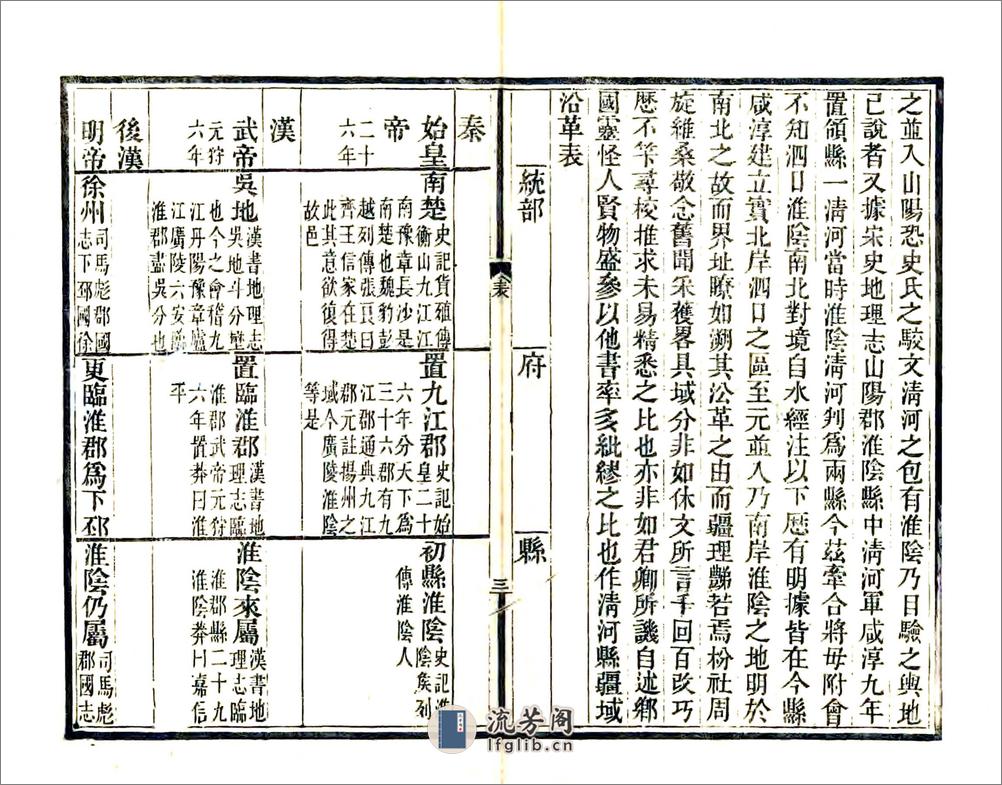 之並入山陽恐史氏之駁文淸河之包有淮陰乃日驗之輿地
已說者又據宋史地理志山陽郡淮陰縣中淸河軍咸淳九年
置領縣一淸河當時淮陰淸河判爲兩縣今茲牽合將毋附會
不知泗口淮陰南北對境自水經注以下歷有明據皆在今縣
咸淳建立實北岸泗口之區至元並入乃南岸淮陰之地明於
南北之故而界址瞭如溯其沿革之由而疆理豁若焉枌社周
旋維桑敬念舊聞采獲畧具域分非如休文所言千回百改巧
歷不筭尋校推求未易精悉之比也亦非如君卿所譏自述鄕
國靈怪人賢物盛參以他書率多紕繆之比也作淸河縣疆域
沿革表
統部
府
縣
表
三
秦
始皇帝
二十六年
南楚
史記貨殖傳衡山九江江南豫章長沙是南楚也魏豹彭越列傳張良曰齊王信家在楚此其意欲復得故邑
置九江郡
史記始皇二十六年分天下爲三十六郡有九江郡通典九江郡元註揚州之域今廣陵淮陰等是
初縣淮陰
史記淮陰矦列傳淮陰人
漢
武帝
元狩六年
吳地
漢書地理志吳地斗分壄也今之會稽九江丹陽豫章廬江廣陵六安臨淮郡盡吳分也
置臨淮郡
漢書地理志臨淮郡武帝元狩六年置莽曰淮平
淮陰來屬
漢書地理志臨淮郡縣二十九淮陰莽曰嘉信
後漢
明帝
徐州
司馬彪郡國志下邳國徐
更臨淮郡爲下邳
淮陰仍屬
司馬彪郡國志
流芳阁
lfglib.cn